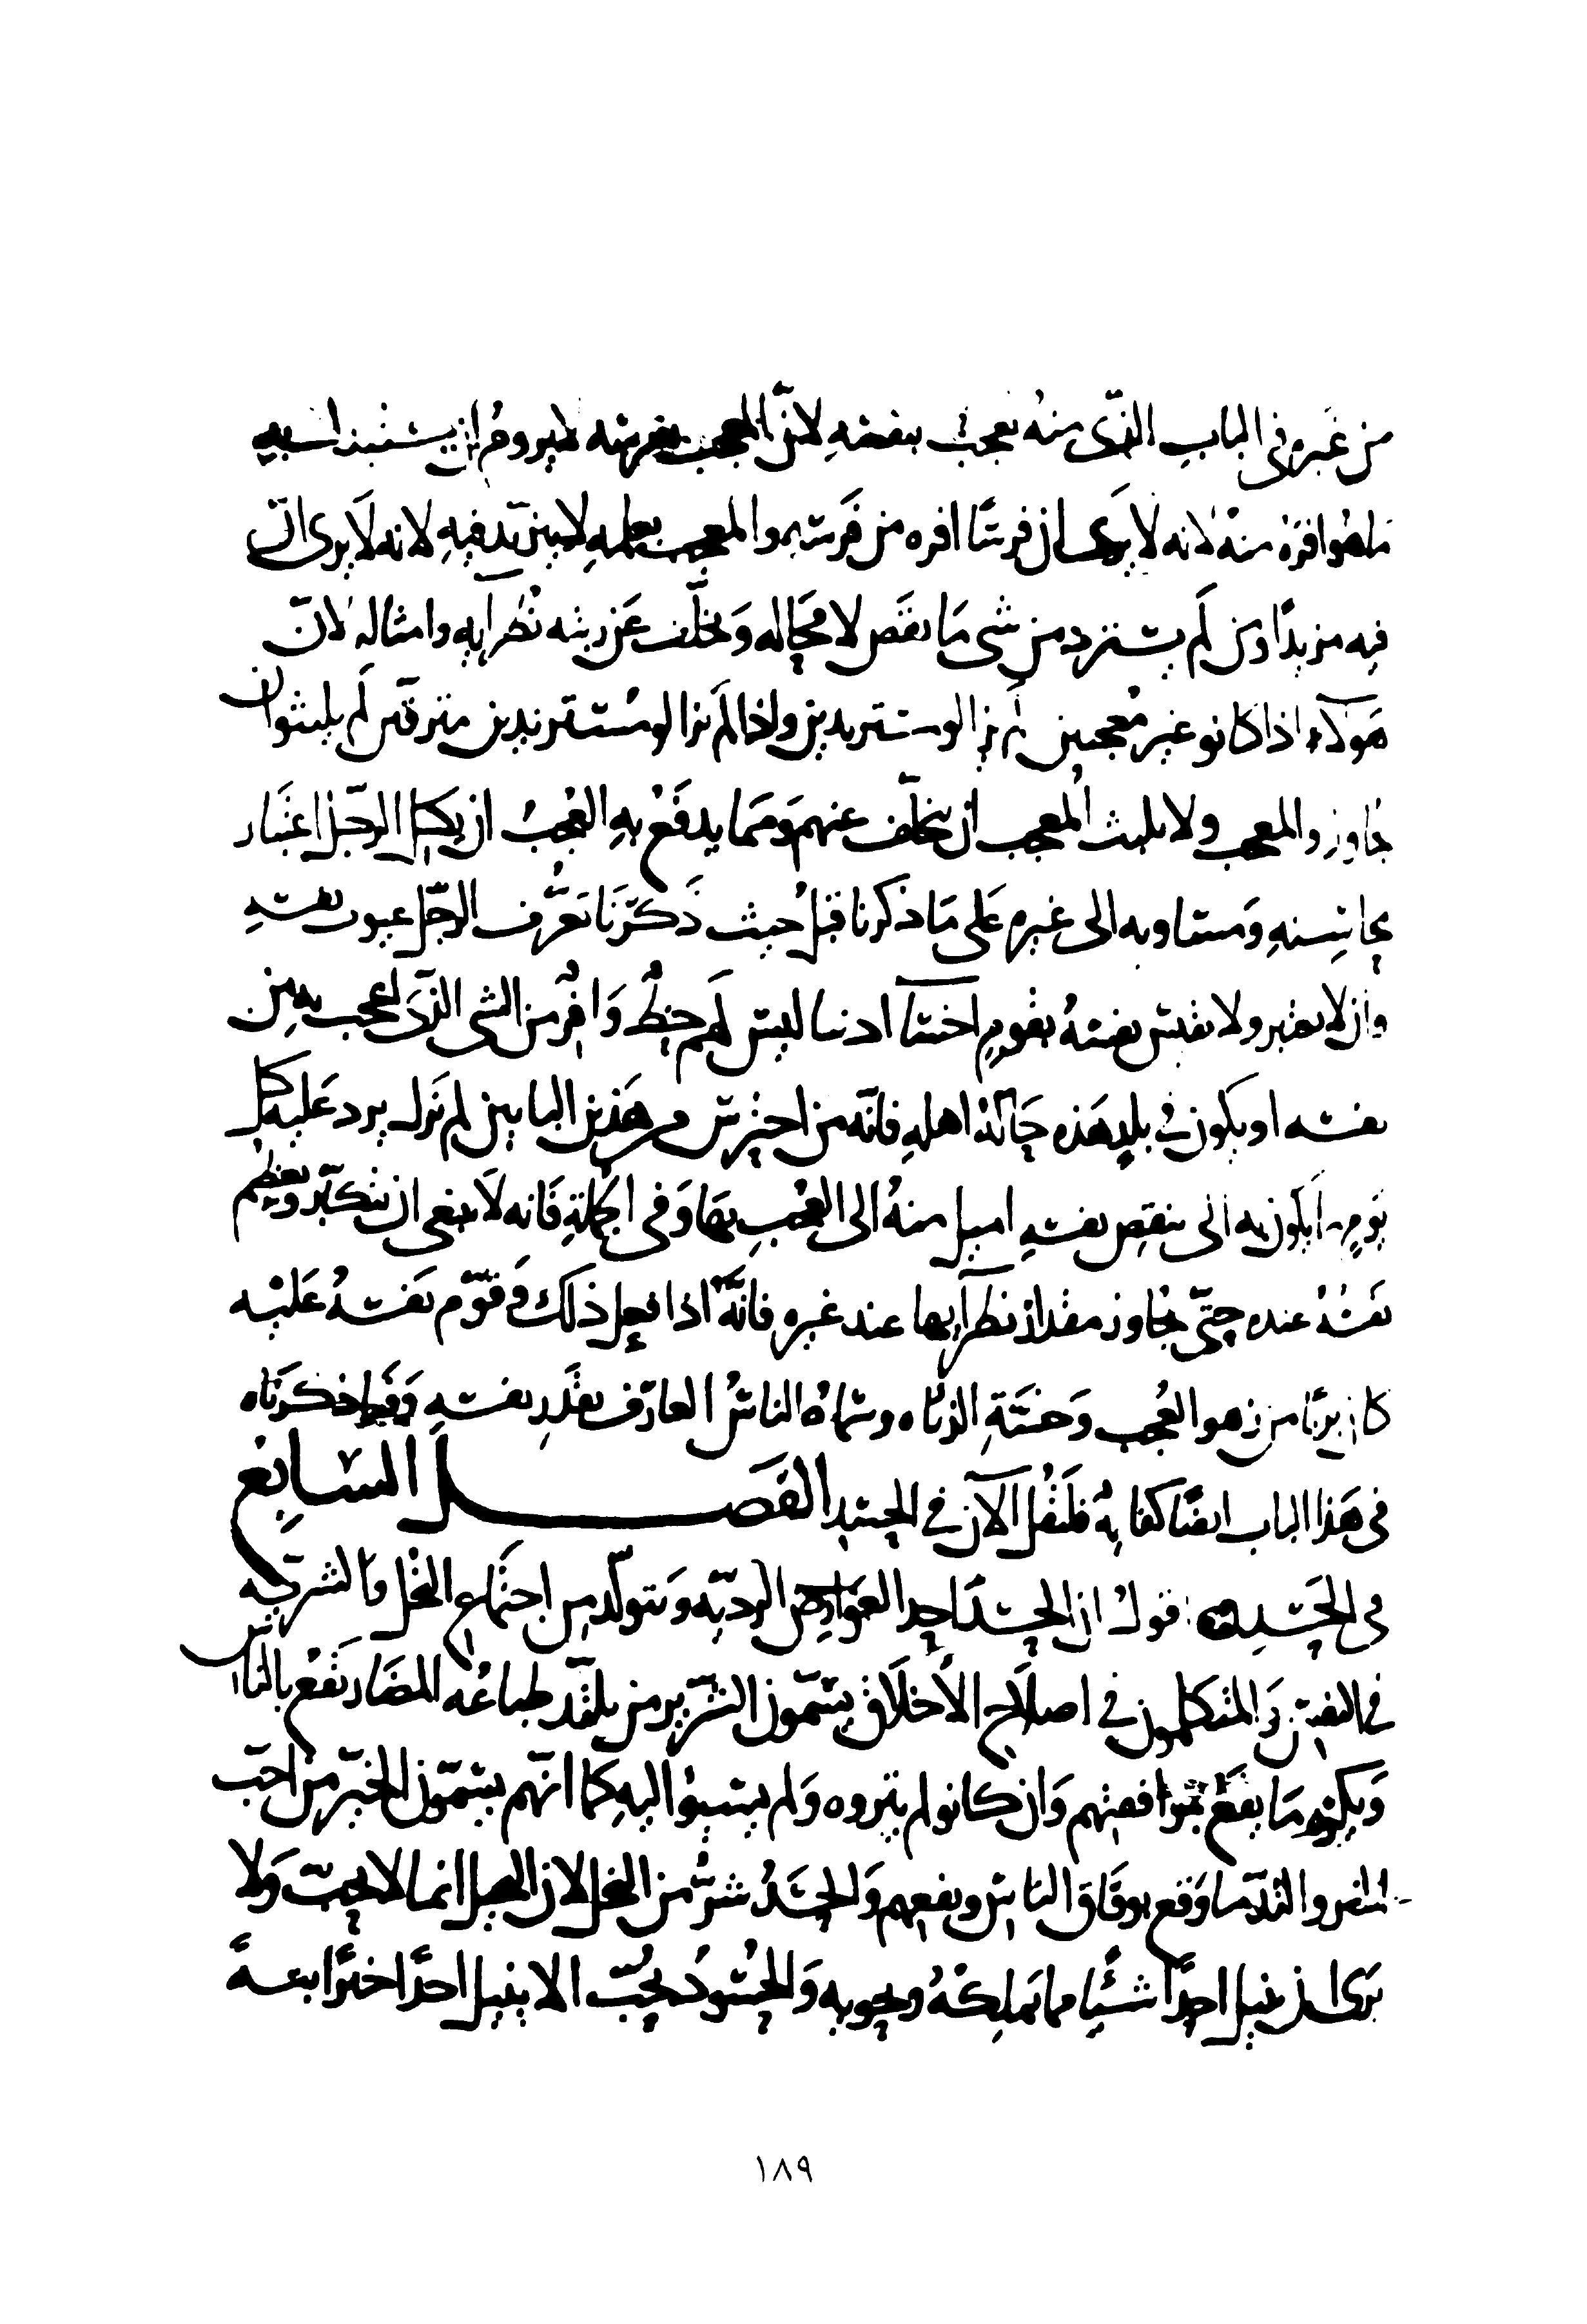 من غيره في الباب الذى منه يعجب بنفسه لان المعجب بفرسه لا يروم ان يستبدل به
ما هو افره منه لانه لا يرى ان فرسًا افره من فرسه والمعجب بعلمه لا يتزيد فيه لانه لا يرى ان
فيه مزيدًا ومن لم يستزد من شى ما نقص لا محاله وتخلف عن رتبه نظرايه وامثاله لان
هولاء اذا كانو غير معجبين لم يزالو مستزيدين واذا لم يزالو مستزيدين مترقين لم يلبثوا ان
جاوزو المعجب ولا يلبث المعجب ان يتخلف عنهم ومما يدفع به العجب ان يكل الرجل اعتبار
محاسنه ومساويه الى غيره على ما ذكرنا قبل حيث ذكرنا تعرف الرجل عيوب نفسه
وان لا يعتبر ولا يقيس نفسه بقوم اخسا ادنيا ليس لهم حظ وافر من الشى الذى اعجب به من
نفسه او يكون في بلد هذه حالة اهله فانه من احترس من هذين البابين لم يزل يرد عليه كل
يوم ما يكون به الى تنقص نفسه اميل منه الى العجب بها وفى الجملة فانه لا ينبغى ان تتكبر وتعظم
نفسه عنده حتى يجاوز مقدار نظرايها عند غيره فانه اذا فعل ذلك وقوم نفسه عليه
كان بريًا من زهو العجب وخسة الدناه وسماه الناس العارف بقدر نفسه وفيما ذكرناه
فى هذا الباب ايضًا كفايه فلنقل الآن في الحسد الفصل السابع
فى الحسد نقول ان الحسد احد العوارض الرديه ويتولد من اجتماع البخل والشر فيه
في النفس والمتكلمون في اصلاح الاخلاق يسمون الشرير من يلتذ طباعه المضار تقع بالناس
ويكره ما يقع بموافقتهم وان كانو لم يتروه ولم يسيئوا اليه كما انهم يسمون الخير من احب
والتذ ما وقع بوفاق الناس ونفعهم والحسد شر من البخل لان البخيل انما لا يحب ولا
يرى ان ينيل احدًا شيئًا مما يملكه ويحويه والحسود يحب الا ينيل احدًا خيرًا بتة
١٨٩